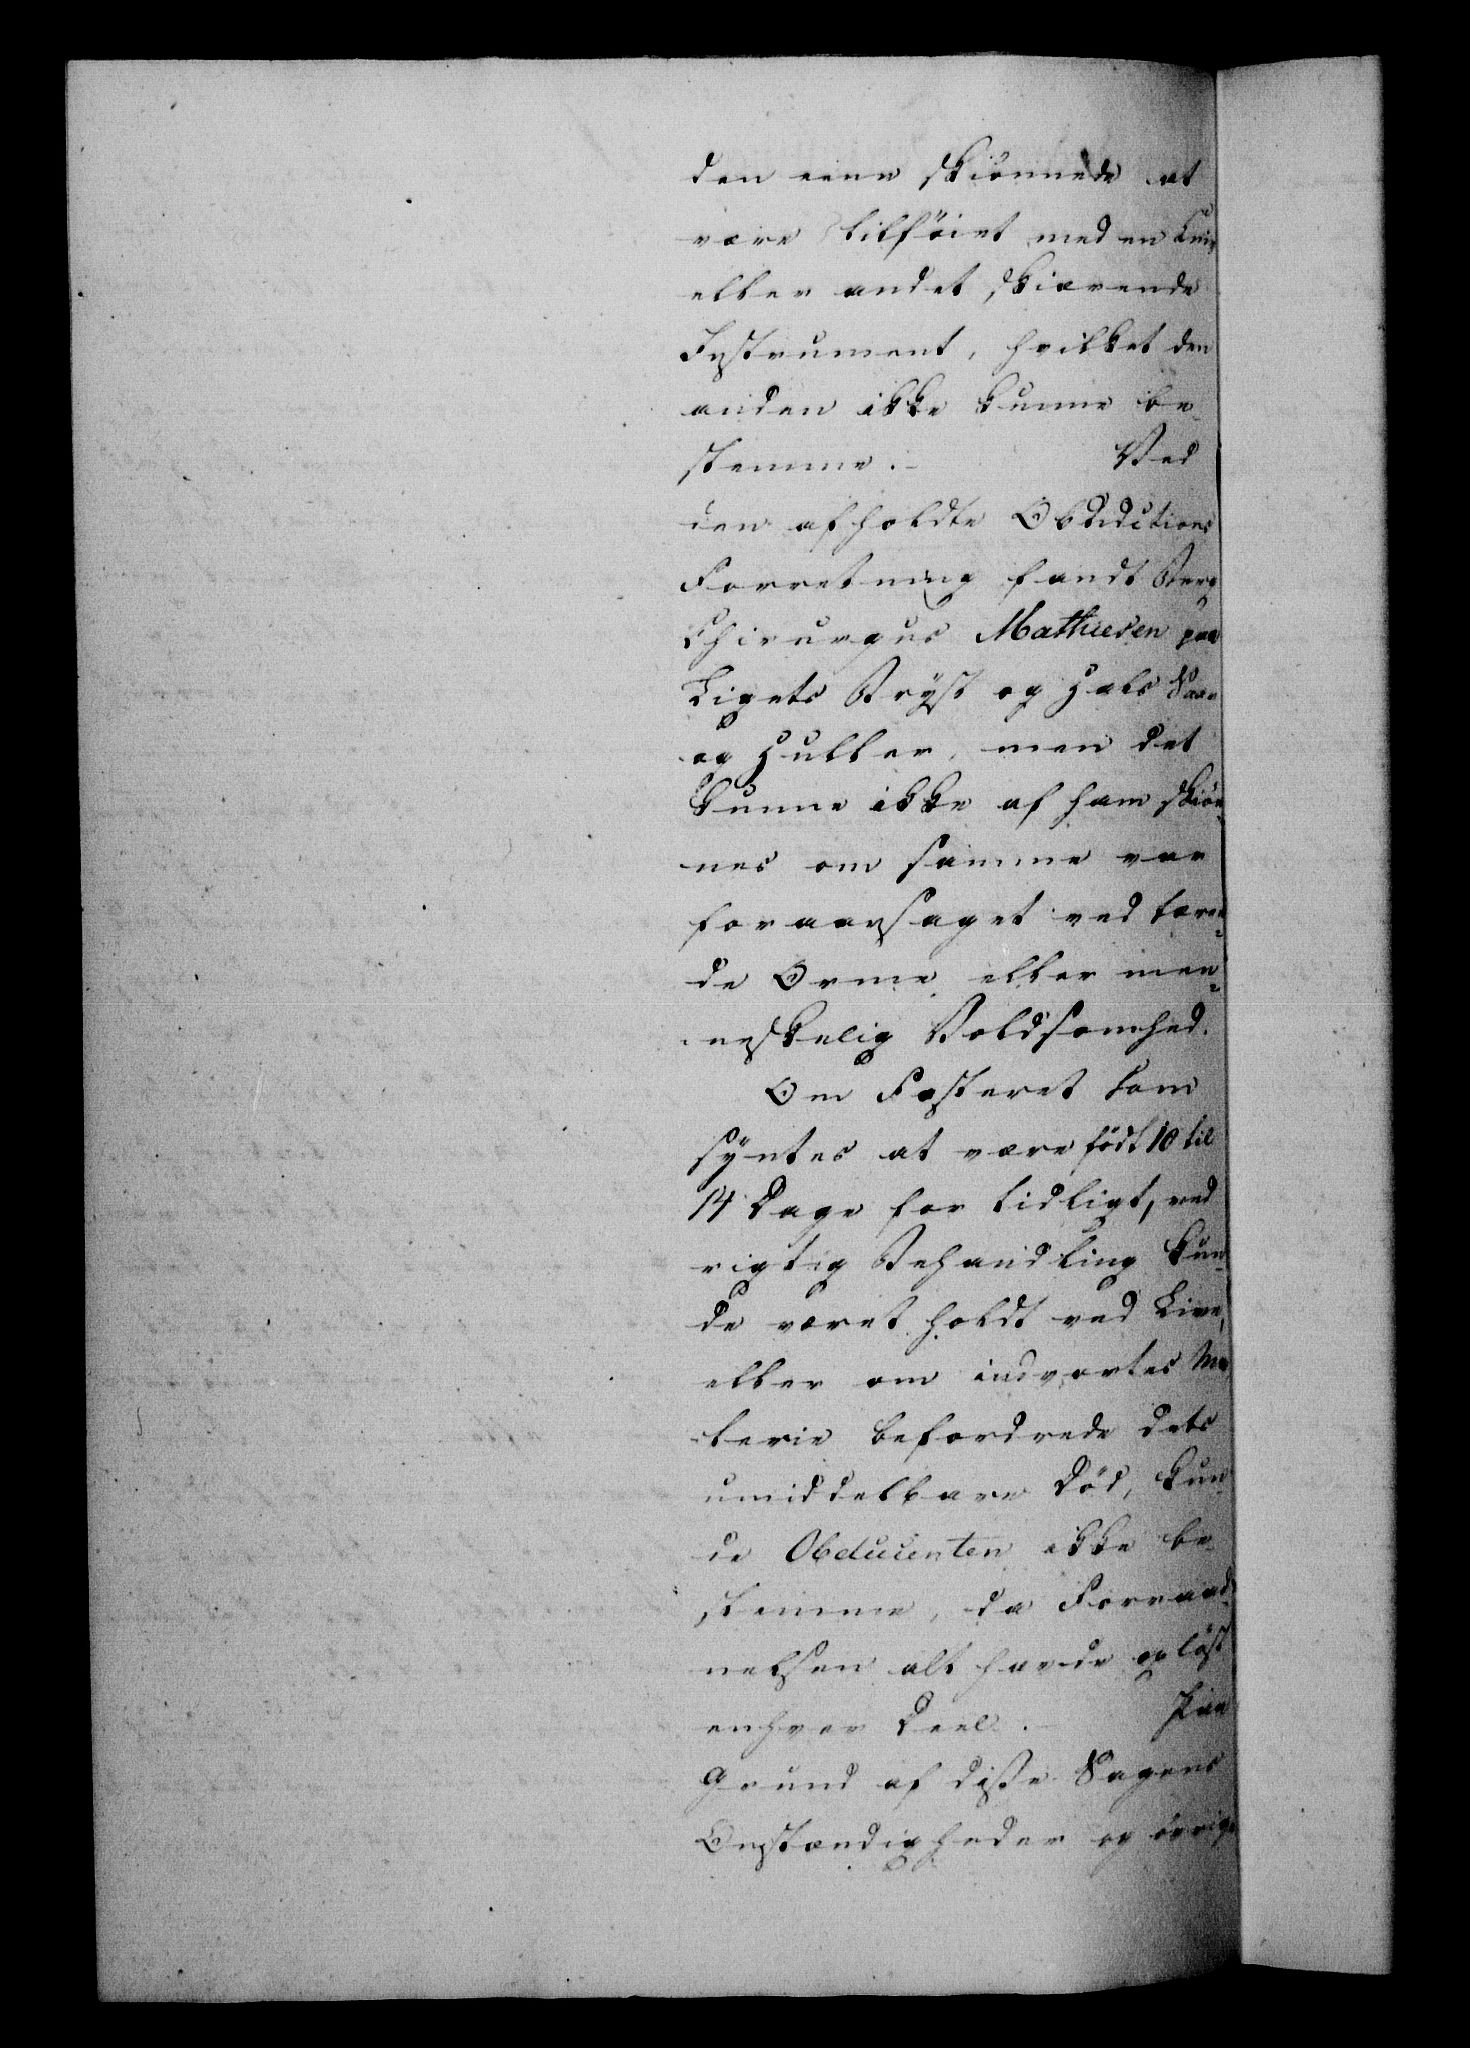 den eene skiönnede at
være tilföiet med en Kniv
eller andet skiærende
Instrument, hvilket den
anden ikke kunne be-
stemme. - Ved
den afholdte Obductions
Forretning fandt Berg
Chirurgus Mathiesen paa
Ligets Bryst og Hals Saar
og Huller, men det
kunne ikke af ham skiön-
nes om samme var
foraarsaget ved tæren-
de Orme eller men-
neskelig Voldsomhed.
Om Fosteret som
syntes at være födt 10 til
14 Dage for tidligt, ved
rigtig Behandling kun-
de været holdt ved Live,
eller om indvortes Ma
terie befordrede dets
umiddelbare Död, kun-
de Obducenten ikke be-
stemme, da Forraad-
nelsen alt havde oplöst
enhver Deel. - Paa
Grund af disse Sagens
Omstændigheder og övrige